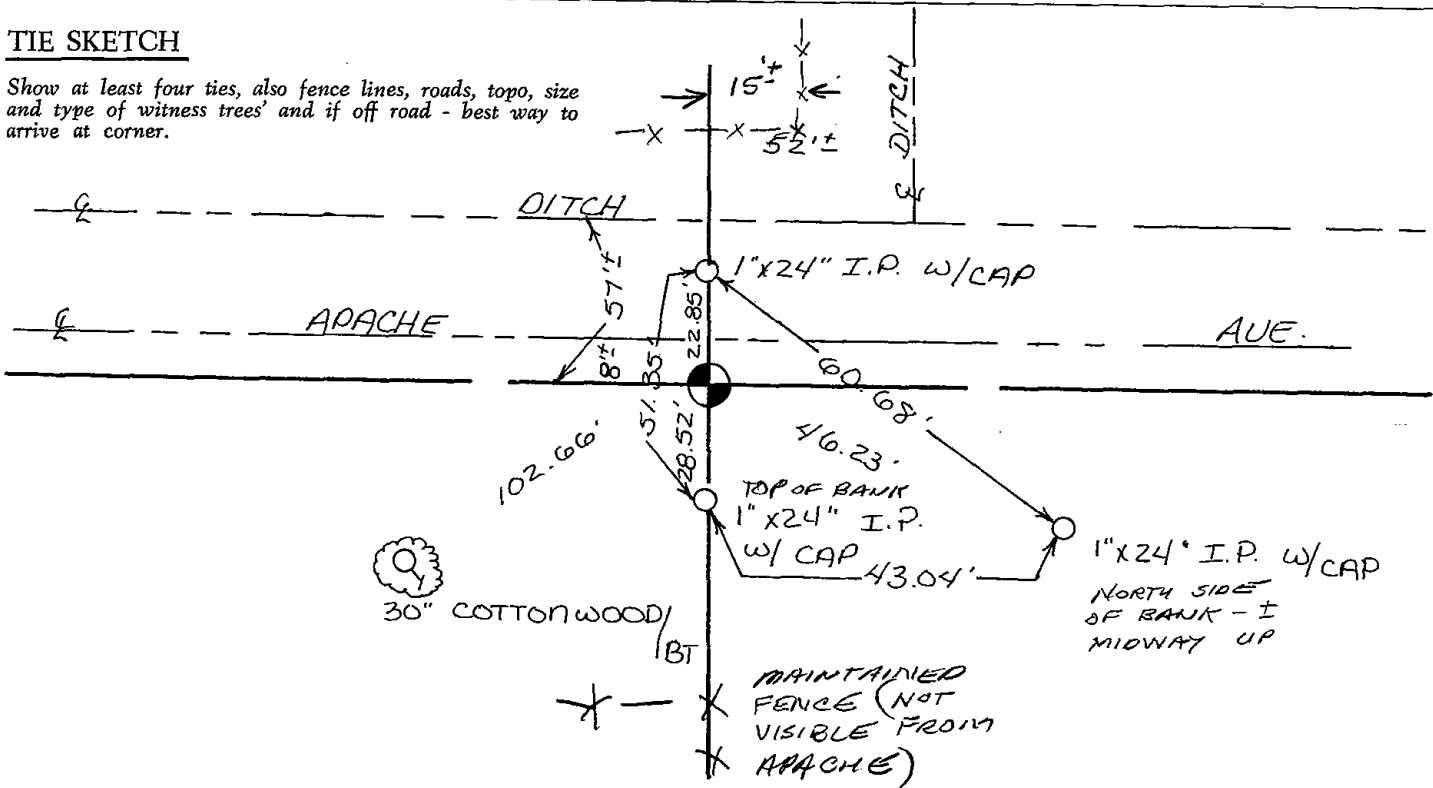 TIE SKETCH
Show at least four ties, also fence lines, roads, topo, size
and type of witness trees' and if off road - best way to
arrive at corner.
15'±
52'±
℄ DITCH
℄
DITCH
1"x24" I.P. W/CAP
57'±
22.85'
℄
APACHE
AVE.
8'±
51.35'
60.68'
28.52'
46.23'
102.66'
TOP OF BANK
1"x24" I.P.
W/ CAP
43.04'
1"x24" I.P. W/CAP
NORTH SIDE
OF BANK - ±
MIDWAY UP
30" COTTONWOOD/
BT
MAINTAINED
FENCE (NOT
VISIBLE FROM
APACHE)